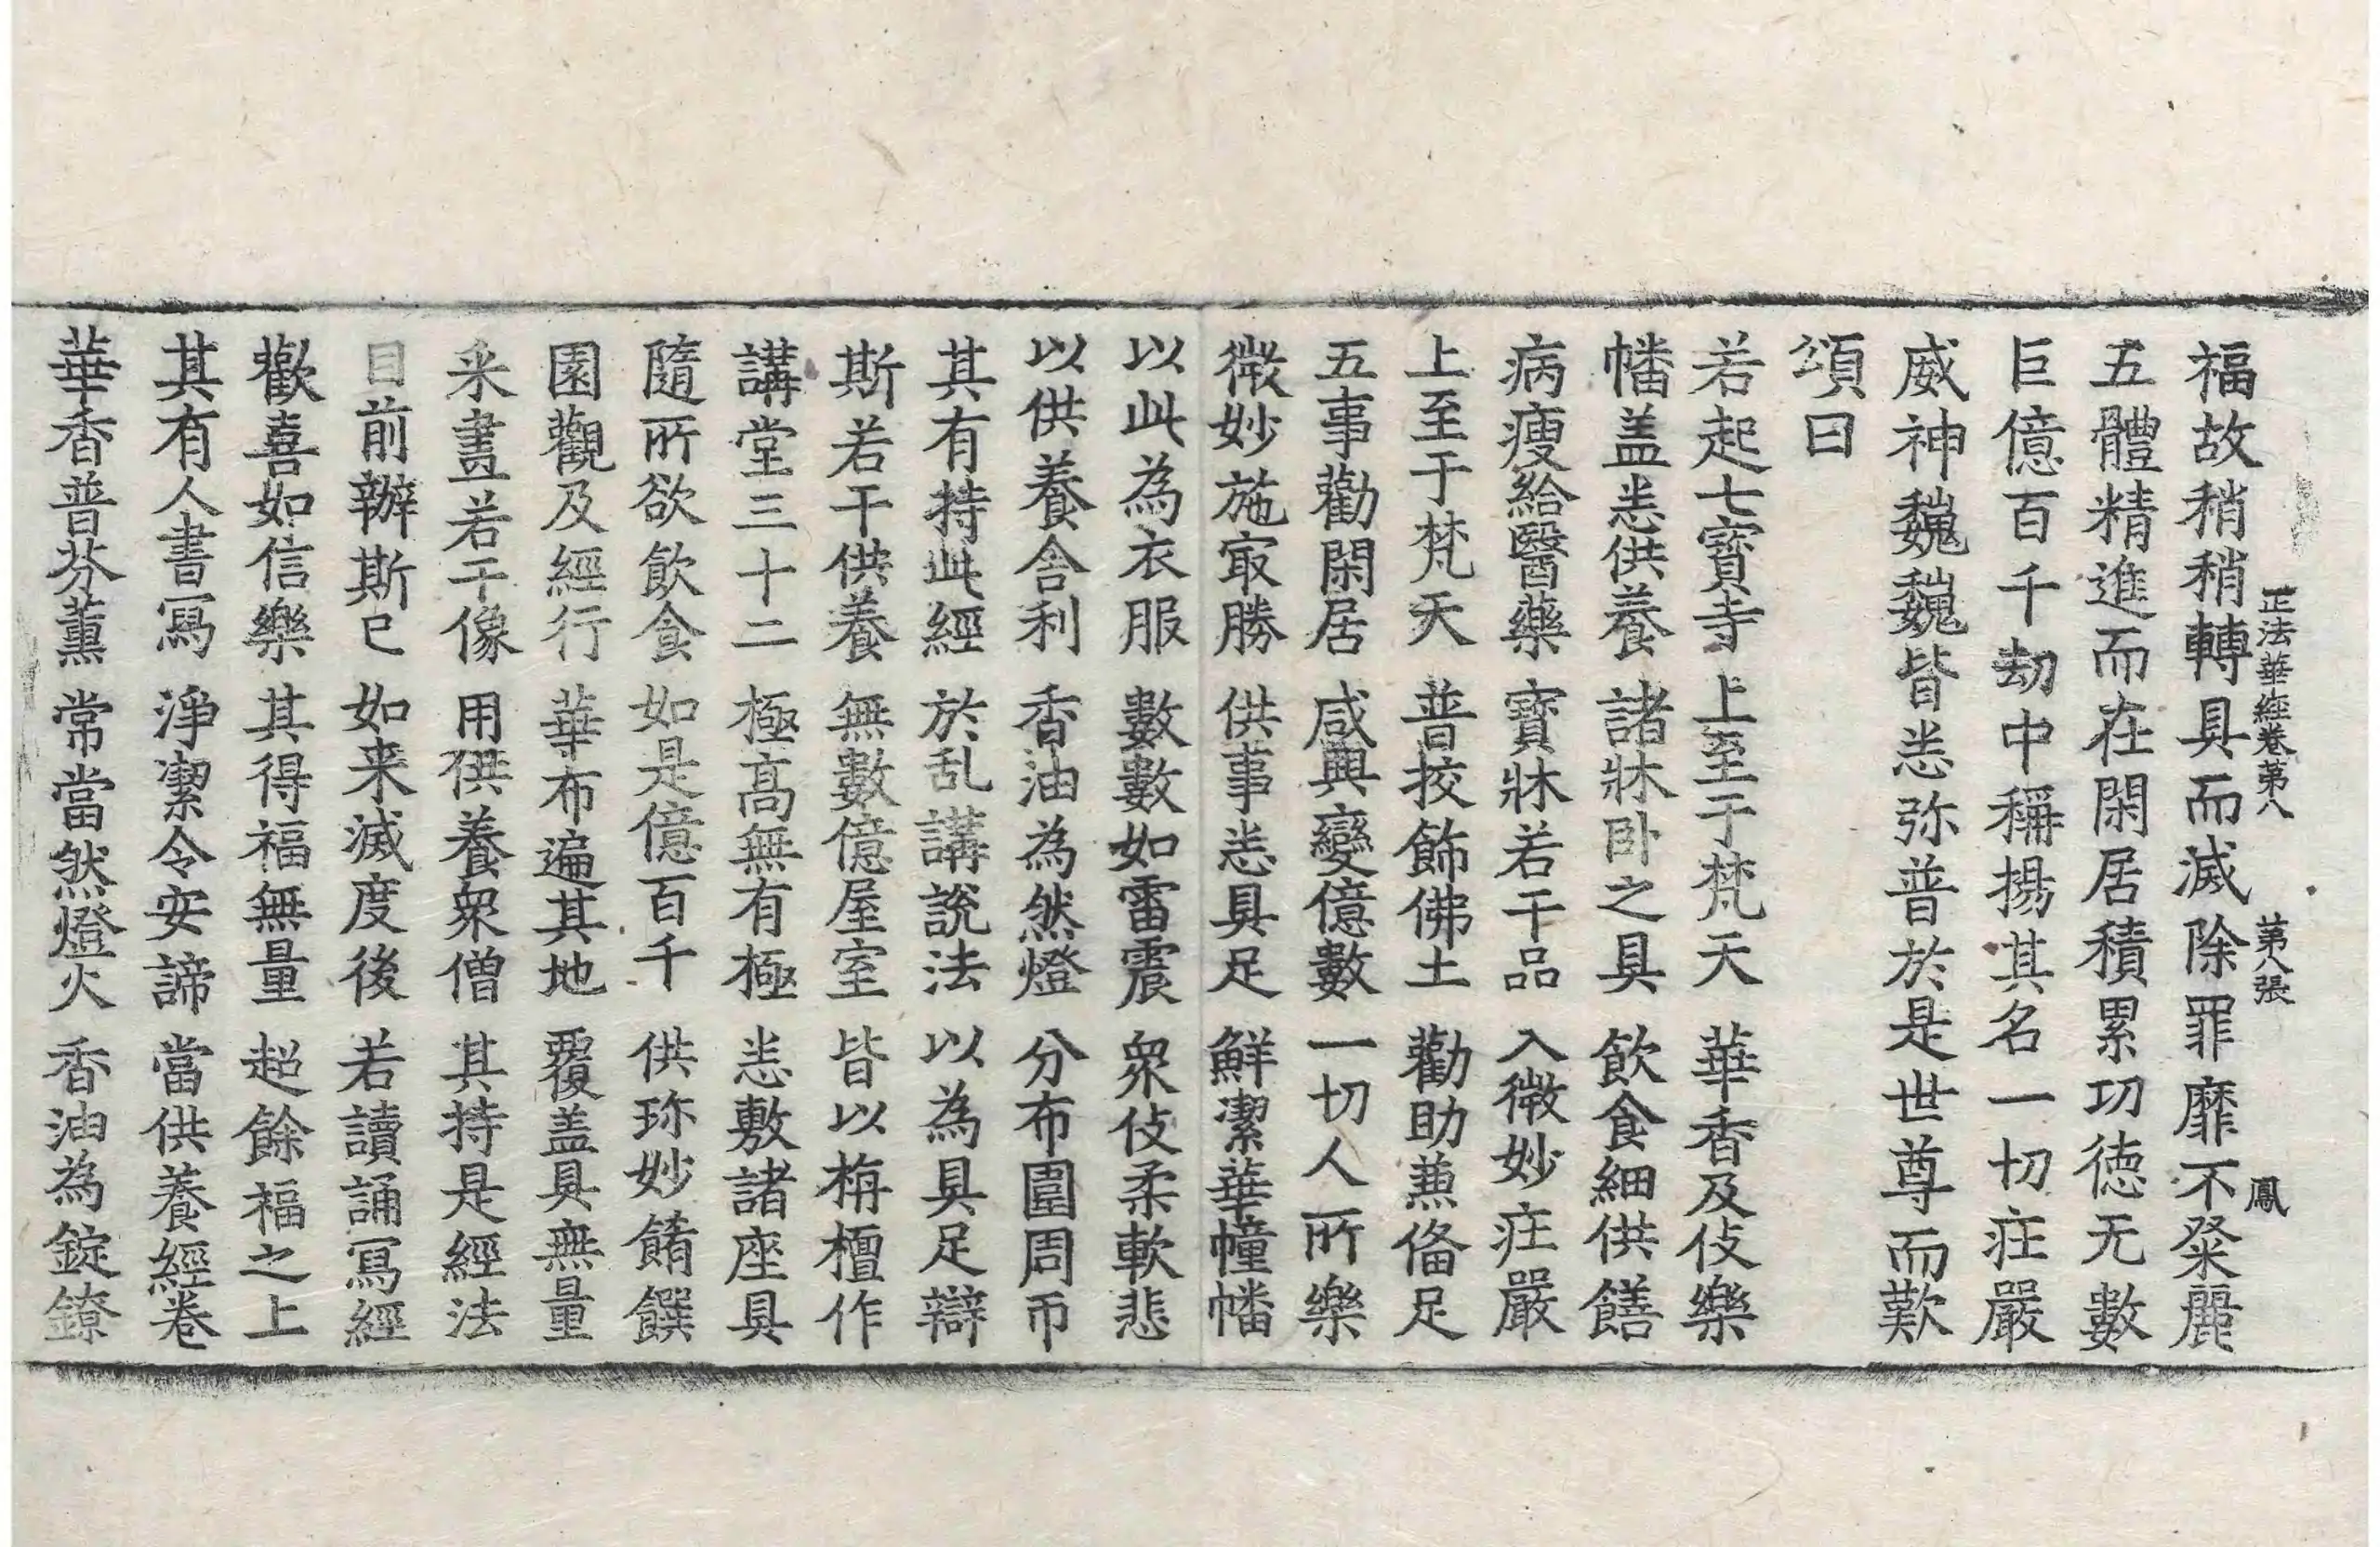 正法華經卷第八　第八張　鳳
福故稍稍轉具而滅除罪靡不粲麗
五體精進而在閑居積累功徳无數
巨億百千劫中稱揚其名一切庄嚴
威神巍巍皆悉弥普於是世尊而歎
頌曰
若起七寶寺　上至于梵天　華香及伎樂
幡盖悉供養　諸牀卧之具　飲食細供饍
病瘦給醫藥　寶牀若干品　入微妙庄嚴
上至于梵天　普挍飾佛土　勸助兼俻足
五事勸閑居　咸興變億數　一切人所樂
微妙施冣勝　供事悉具足　鮮潔華幢幡
以此為衣服　數數如雷震　衆伎柔軟悲
以供養舍利　香油為然燈　分布圍周帀
其有持此經　於乱講說法　以為具足辯
斯若干供養　無數億屋室　皆以栴檀作
講堂三十二　極高無有極　悉敷諸座具
隨所欲飲食　如是億百千　供珎妙餚饌
園觀及經行　華布遍其地　覆盖具無量
采畫若干像　用供養衆僧　其持是經法
目前辦斯已　如来滅度後　若讀誦寫經
歡喜如信樂　其得福無量　超餘福之上
其有人書寫　淨潔令安諦　當供養經卷
華香普芬薰　常當然燈火　香油為錠鐐